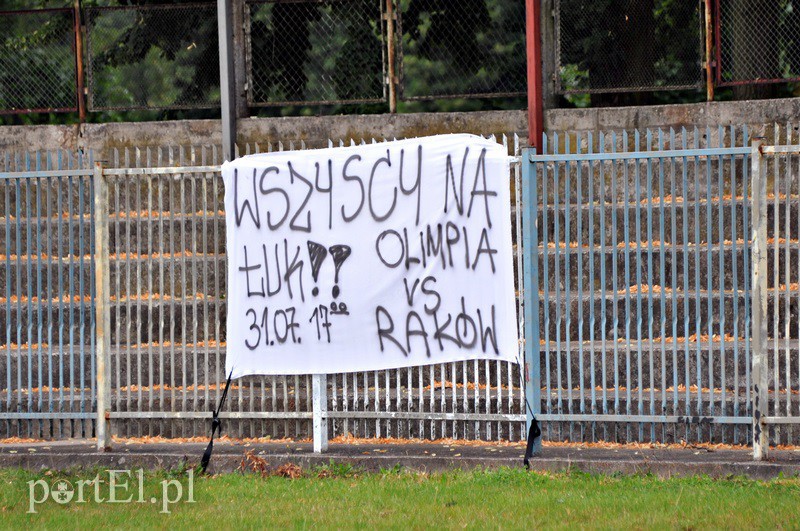 WSZYSCY NA
ŁUK!!
31.07. 17⁰⁰
OLIMPIA
VS
RAKÓW
portEl.pl